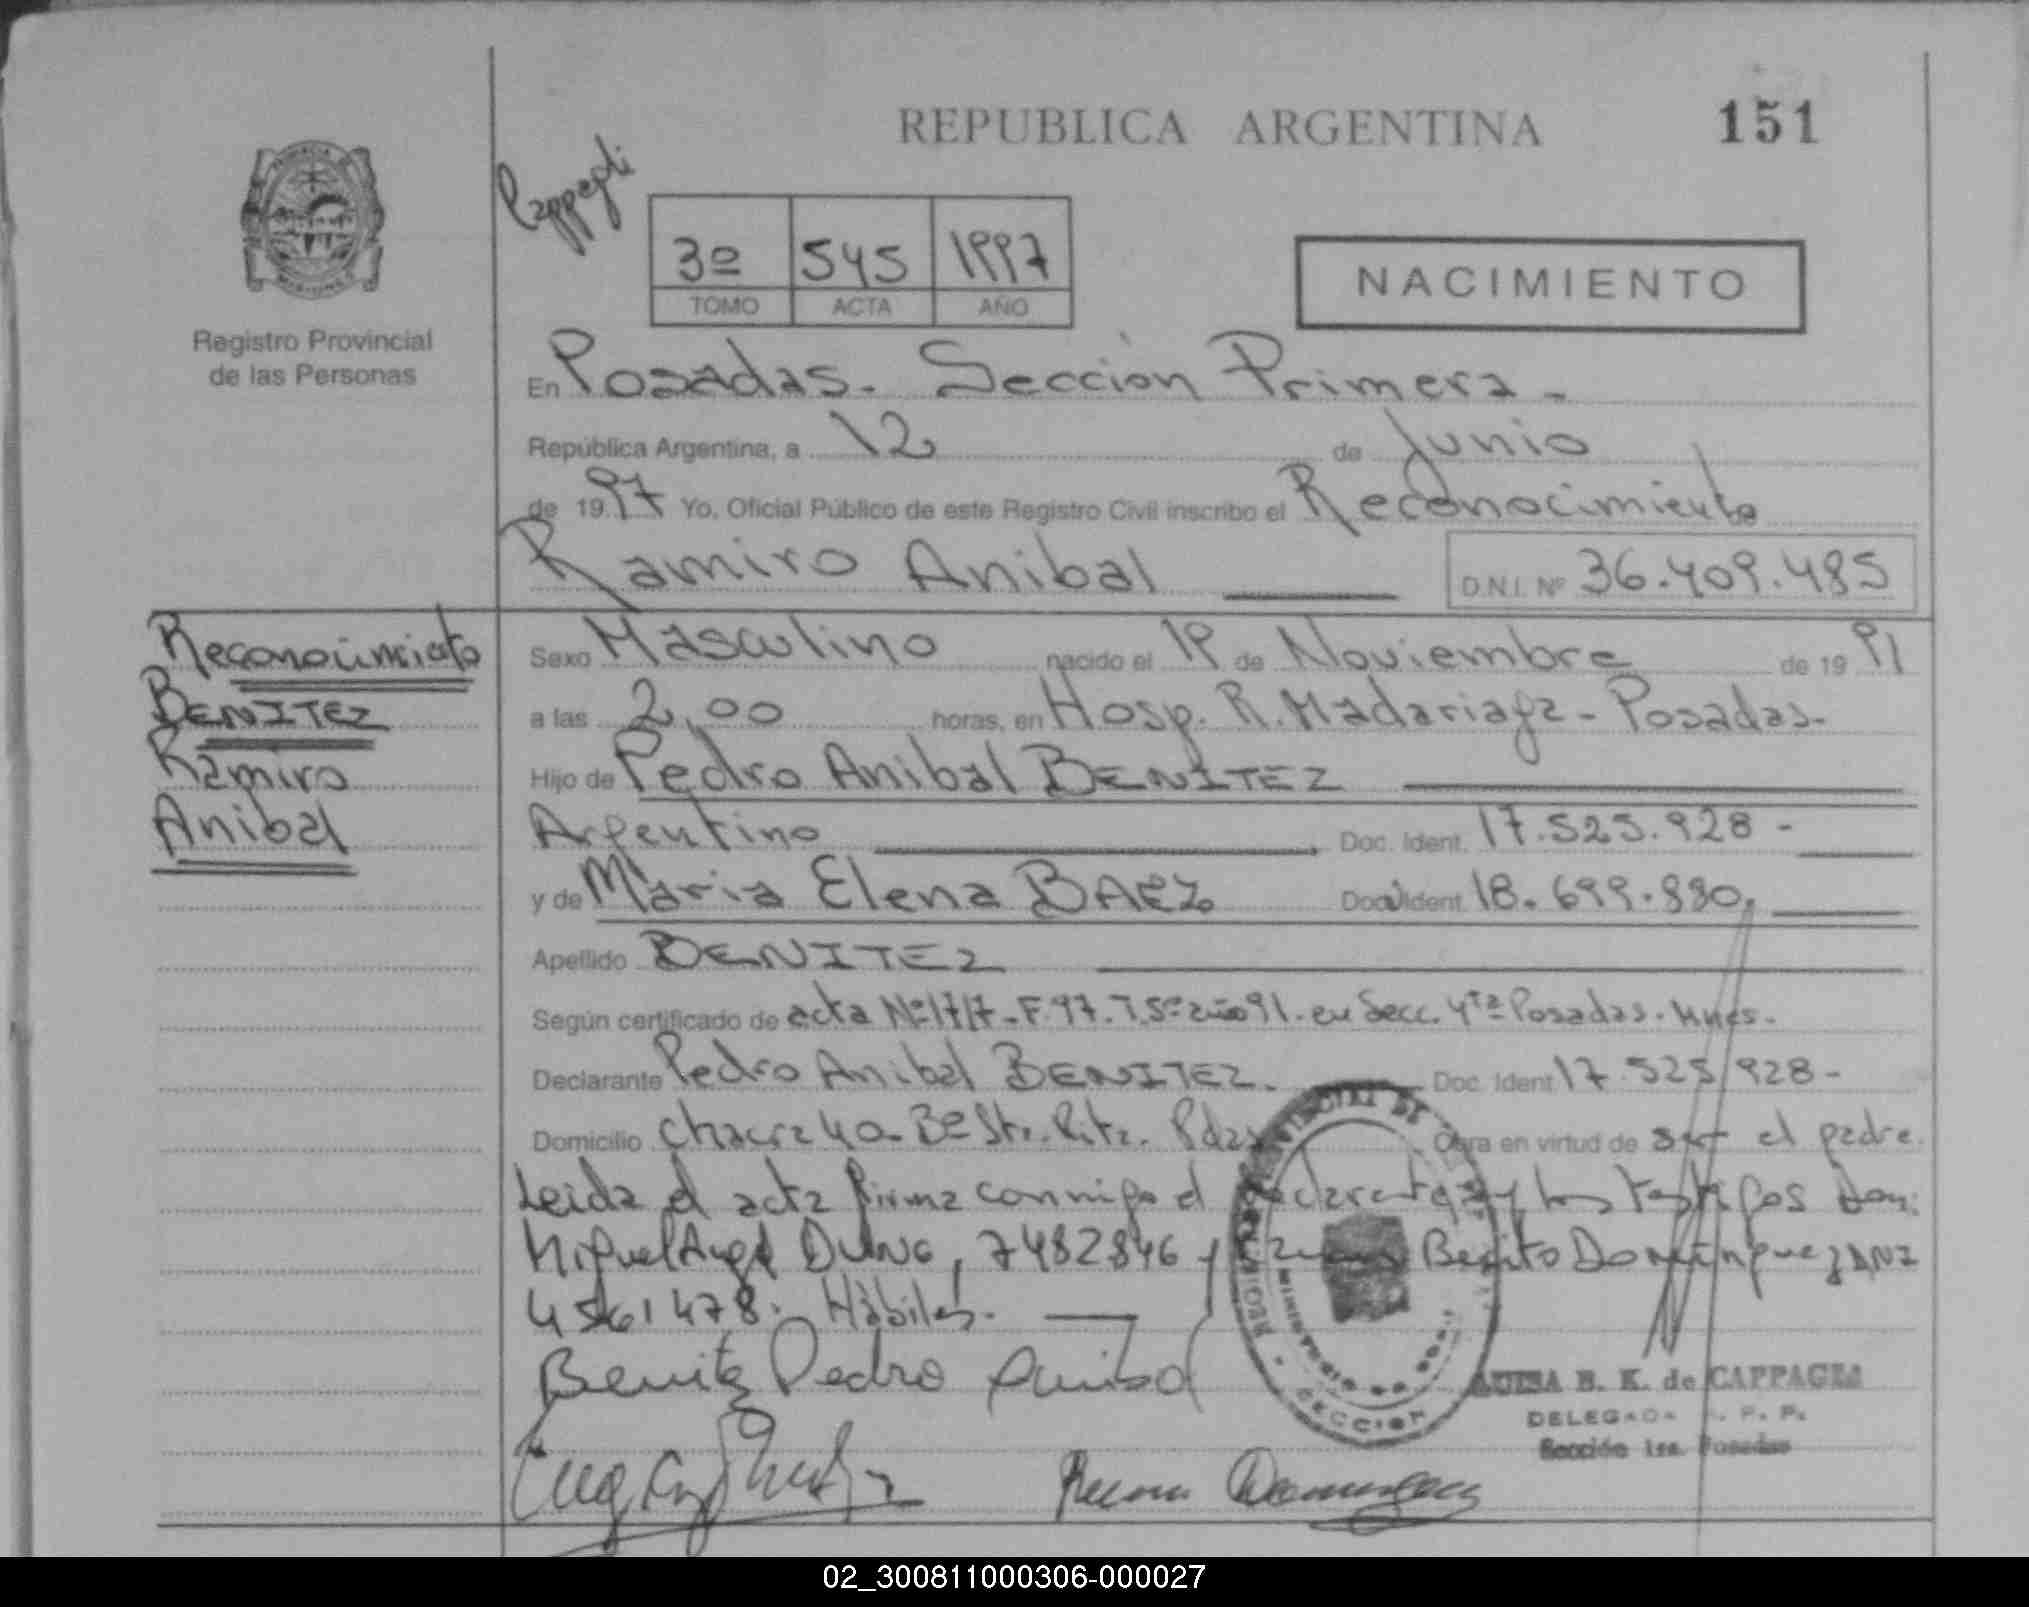 REPUBLICA ARGENTINA
151
Registro Provincial
de las Personas
3º 545 1997
TOMO ACTA AÑO
NACIMIENTO
En Posadas. Sección Primera -
República Argentina, a 12 de Junio
de 1997 Yo, Oficial Público de este Registro Civil inscribo el Reconocimiento
Ramiro Anibal
D.N.I. Nº 36.409.485
Reconocimiento
BENITEZ
Ramiro
Anibal
Sexo Masculino nacido el 19 de Noviembre de 1991
a las 2,00 horas, en Hosp. R. Madariaga - Posadas.
Hijo de Pedro Anibal BENITEZ
Argentino Doc. Ident. 17.525.928 -
y de Maria Elena BAEZ Doc. Ident. 18.699.880.
Apellido BENITEZ
Según certificado de acta Nº 1717 - F. 97. T. 5º año 91. en Secc. 4ta Posadas. Mnes.
Declarante Pedro Anibal BENITEZ. Doc. Ident 17.525.928 -
Domicilio Chacra 40. Bº Sta. Rita. Pdas Obra en virtud de ser el padre.
Leida el acta firma conmigo el declarante y los testigos Don:
Miguel Angel, 7482846 y Benito Dominguez DNI
4561478. Hábiles.
Benitez Pedro Anibal
SECCION
B. K. de CAPPAGLI
DELEGADA R. P. P.
Sección 1ra. Posadas
02_300811000306-000027